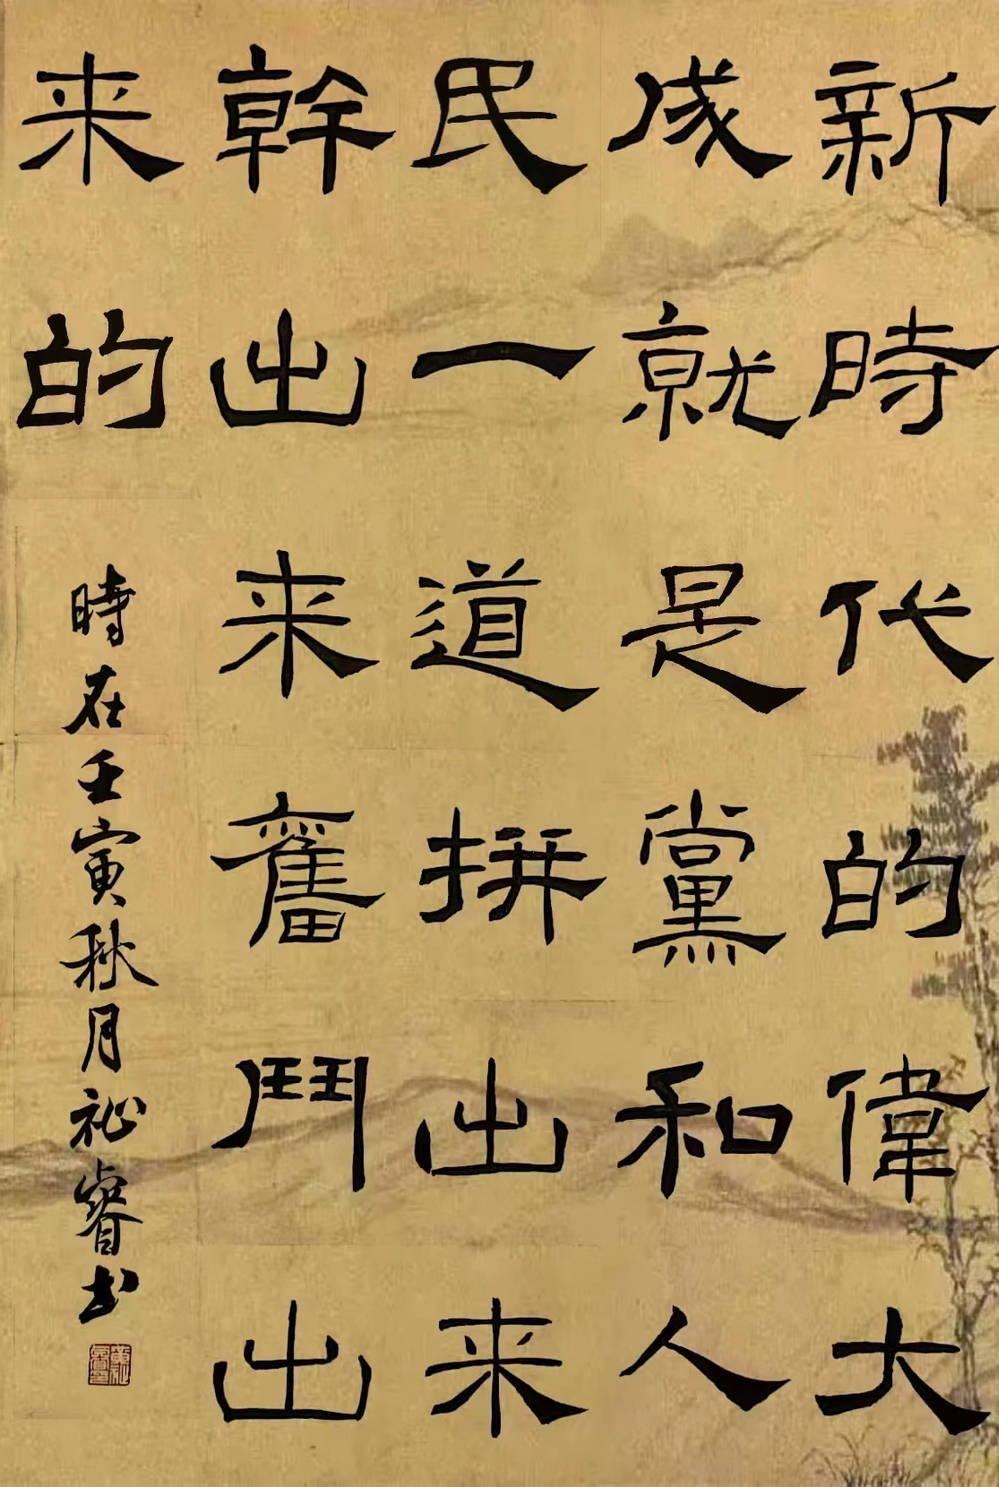 新時代的偉大
成就是黨和人
民一道拼出来
幹出来奮鬥出
来的
時在壬寅秋月祉睿书